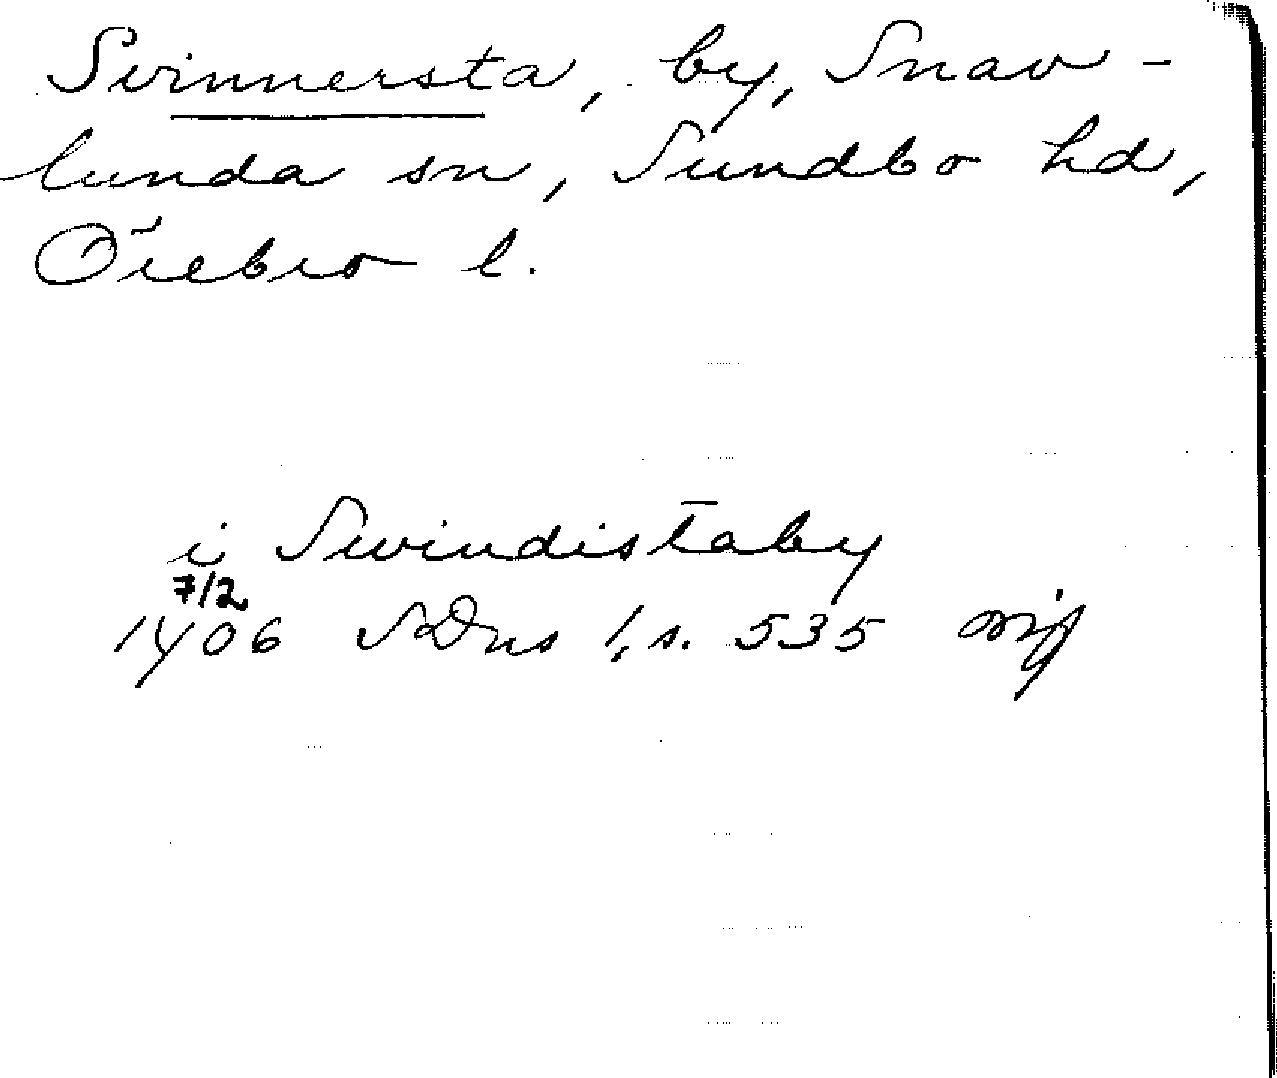 Svinnersta, by, Snav-
lunda sn, Sundbo hd,
Örebro l.
i Swindistaby
7/2
1406 SDns 1, s. 535